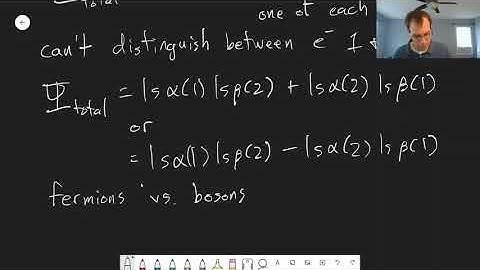 Ψtotal
one of each
can't distinguish between e⁻ 1
Ψtotal = 1sα(1) 1sβ(2) + 1sα(2) 1sβ(1)
or
= 1sα(1) 1sβ(2) − 1sα(2) 1sβ(1)
fermions vs. bosons